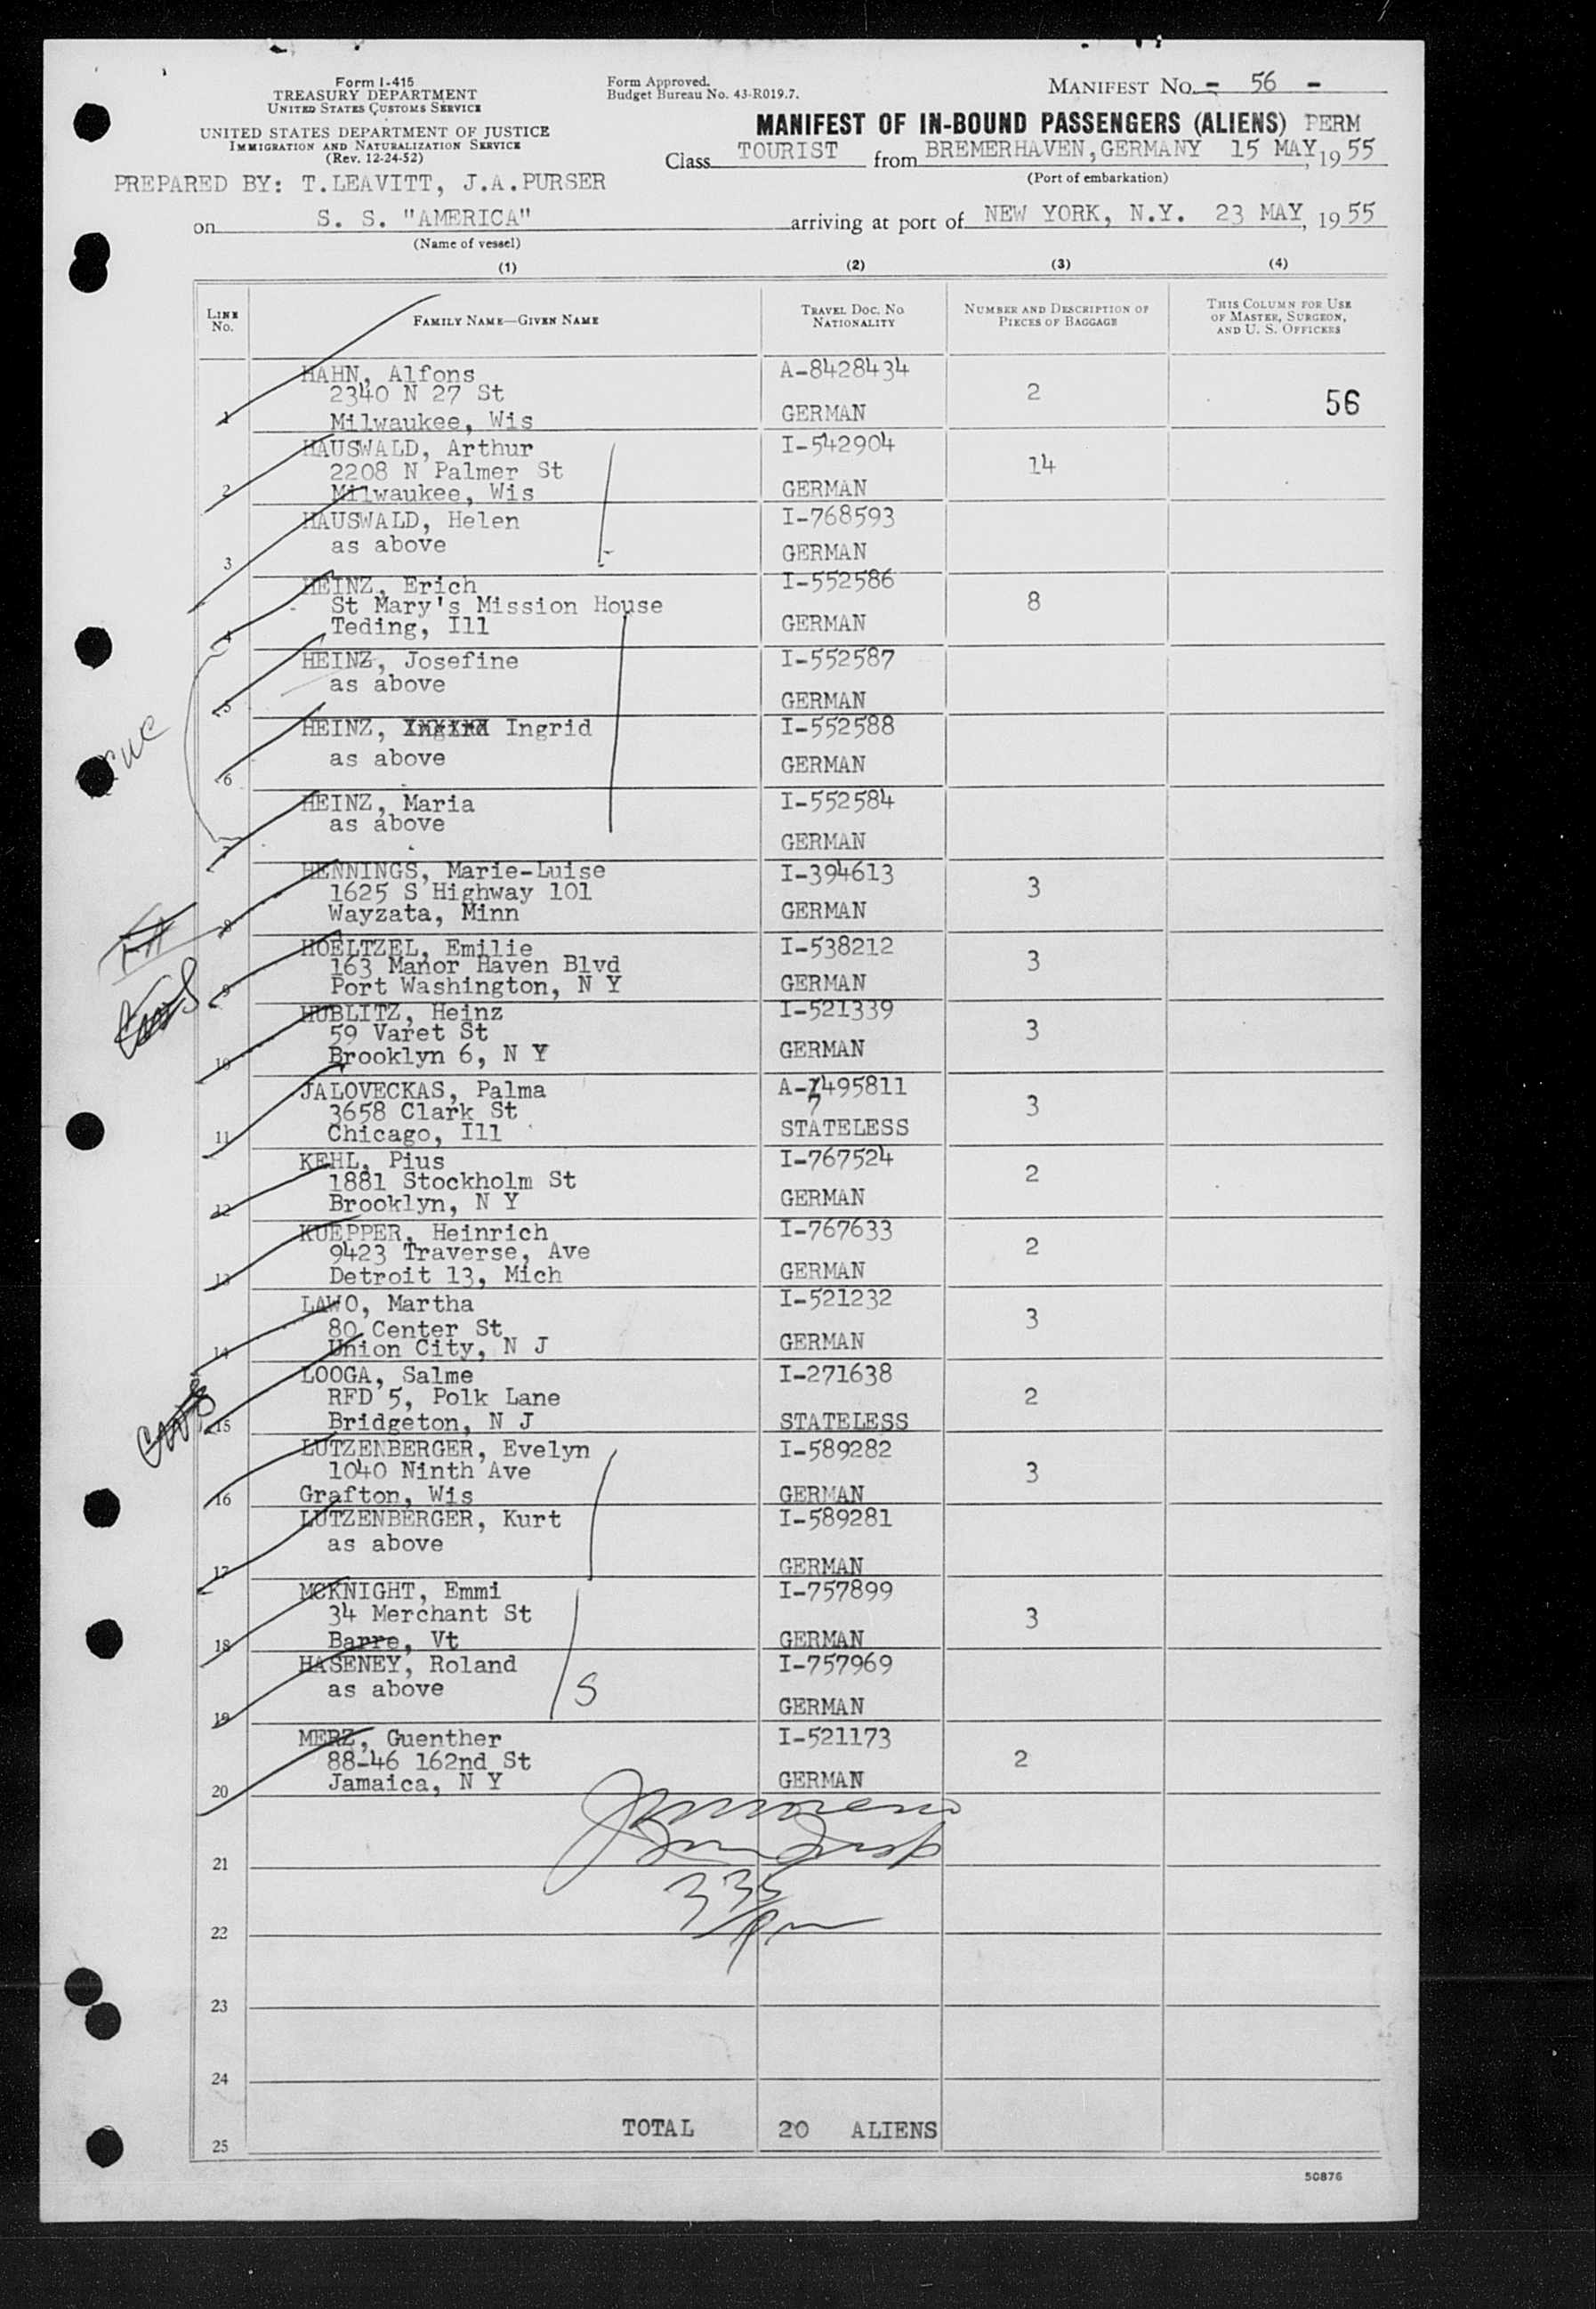 Form I-415
TREASURY DEPARTMENT
UNITED STATES CUSTOMS SERVICE
UNITED STATES DEPARTMENT OF JUSTICE
IMMIGRATION AND NATURALIZATION SERVICE
(Rev. 12-24-52)
Form Approved.
Budget Bureau No. 43-R019.7.
MANIFEST No. - 56 -
MANIFEST OF IN-BOUND PASSENGERS (ALIENS) PERM
Class TOURIST from BREMERHAVEN, GERMANY 15 MAY, 1955
(Port of embarkation)
PREPARED BY: T.LEAVITT, J.A.PURSER
on S. S. "AMERICA" arriving at port of NEW YORK, N.Y. 23 MAY, 1955
(Name of vessel)
(1) (2) (3) (4)
LINE No. FAMILY NAME—GIVEN NAME TRAVEL DOC. No. NATIONALITY NUMBER AND DESCRIPTION OF PIECES OF BAGGAGE THIS COLUMN FOR USE OF MASTER, SURGEON, AND U. S. OFFICERS
HAHN, Alfons A-8428434
2340 N 27 St 2 56
1 Milwaukee, Wis GERMAN
HAUSWALD, Arthur I-542904
2208 N Palmer St 14
2 Milwaukee, Wis GERMAN
HAUSWALD, Helen I-768593
as above
3 GERMAN
HEINZ, Erich I-552586
St Mary's Mission House 8
4 Teding, Ill GERMAN
HEINZ, Josefine I-552587
as above
5 GERMAN
HEINZ, Ingrid I-552588
as above
6 GERMAN
HEINZ, Maria I-552584
as above
7 GERMAN
HENNINGS, Marie-Luise I-394613
1625 S Highway 101 3
8 Wayzata, Minn GERMAN
HOELTZEL, Emilie I-538212
163 Manor Haven Blvd 3
9 Port Washington, N Y GERMAN
HUBLITZ, Heinz I-521339
59 Varet St 3
10 Brooklyn 6, N Y GERMAN
JALOVECKAS, Palma A-7495811
3658 Clark St 3
11 Chicago, Ill STATELESS
KEHL, Pius I-767524
1881 Stockholm St 2
12 Brooklyn, N Y GERMAN
KUEPPER, Heinrich I-767633
9423 Traverse, Ave 2
13 Detroit 13, Mich GERMAN
LAWO, Martha I-521232
80 Center St 3
14 Union City, N J GERMAN
LOOGA, Salme I-271638
RFD 5, Polk Lane 2
15 Bridgeton, N J STATELESS
LUTZENBERGER, Evelyn I-589282
1040 Ninth Ave 3
16 Grafton, Wis GERMAN
LUTZENBERGER, Kurt I-589281
as above
17 GERMAN
MCKNIGHT, Emmi I-757899
34 Merchant St 3
18 Barre, Vt GERMAN
HASENEY, Roland I-757969
as above S
19 GERMAN
MERZ, Guenther I-521173
88-46 162nd St 2
20 Jamaica, N Y GERMAN
21
335
pm
22
23
24
TOTAL 20 ALIENS
25
50876